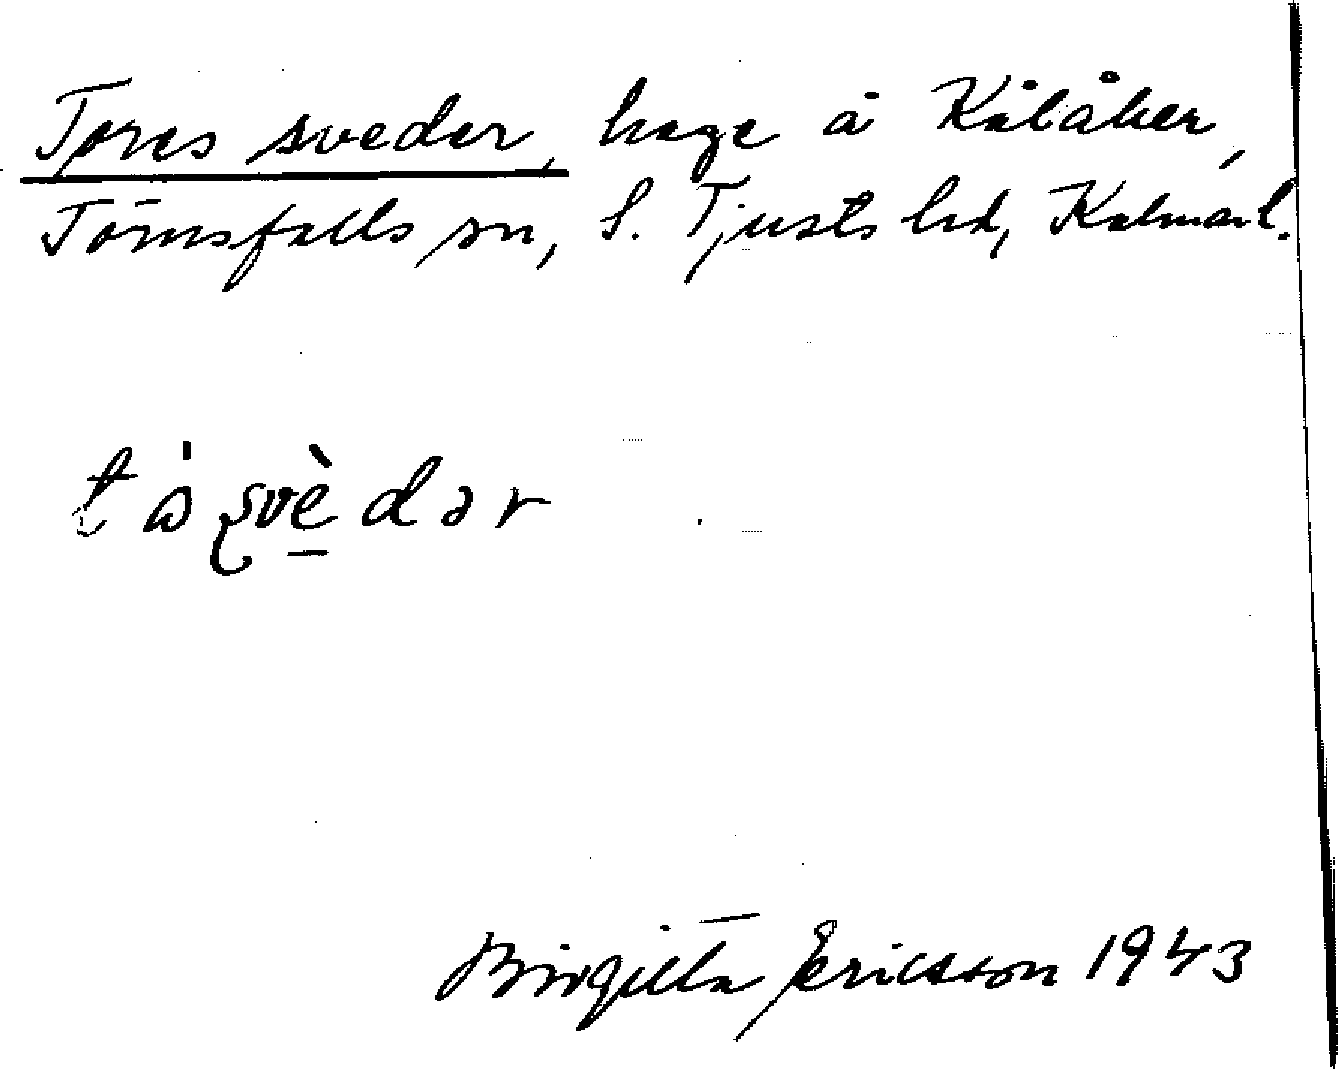 Tores sveder, hage å Kålåker,
Törnsfalls sn, S. Tjusts hd, Kalmar l.
tɷ́ʂvè̠dər
Birgitta Ericsson 1943